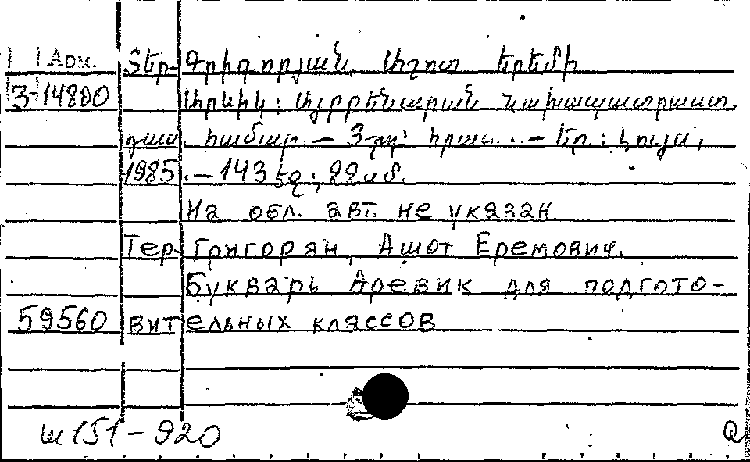 Арм. Տեր- Գրիգորյան, Աշոտ Երեմի
3-14800 Արևիկ: Այբբենարան նախապատրաստ.
դաս. համար. — 3-րդ հրատ. — Եր.: Լույս,
1985. — 143 էջ; 22 սմ.
На обл. авт. не указан
Тер-Григорян, Ашот Еремович.
Букварь Аревик для подгото-
59560 вительных классов
ш151-920